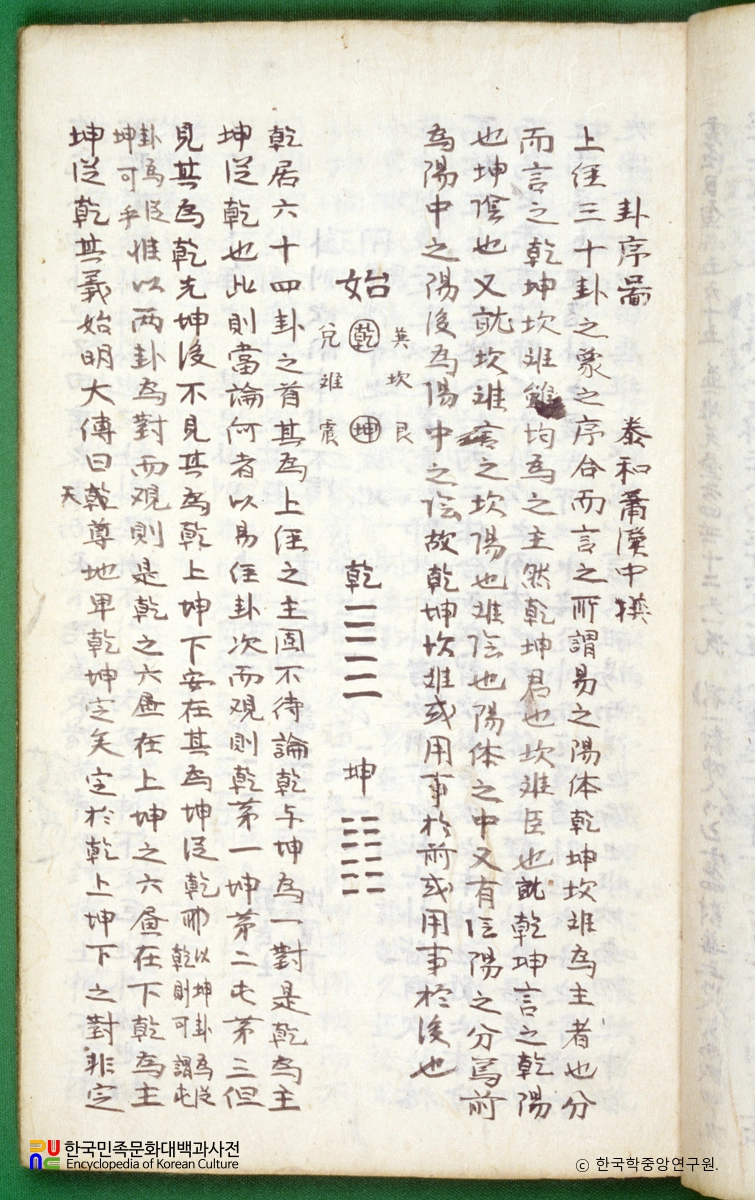 卦序畾 泰和蕭漢中撰
上俓三十卦之象之序合而言之所謂易之陽体乾坤坎难為主者也分
而言之乾坤坎难雖均為之主然乾坤君也坎难臣也就乾坤言之乾陽
也坤陰也又就坎难言之坎陽也难陰也陽体之中又有陰陽之分焉前
為陽中之陽後為陽中之陰故乾坤坎难或用事於前或用事於後也
巽坎艮
始 乾 坤 乾 坤
兌难震
乾居六十四卦之首其為上俓之主固不待論乾与坤為一對是乾為主
坤從乾也此則當論何者以易俓卦次而观則乾苐一坤苐二屯苐三但
見其為乾先坤後不見其為乾上坤下安在其為坤從乾耶以坤卦為從
乾則可謂屯
卦為從
坤可乎惟以两卦為對而观則是乾之六昼在上坤之六昼在下乾為主
坤從乾其義始明大傳曰天尊地卑乾坤定矣定於乾上坤下之對非定
한국민족문화대백과사전
Encyclopedia of Korean Culture
© 한국학중앙연구원.